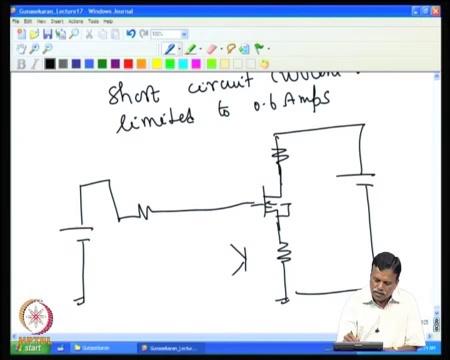 Gunasekaran_Lecture17 - Windows Journal
File Edit View Insert Actions Tools Help
B I
short circuit
limited to 0.6 Amps
NPTEL
start
Gunasekaran
Gunasekaran_Lectur...